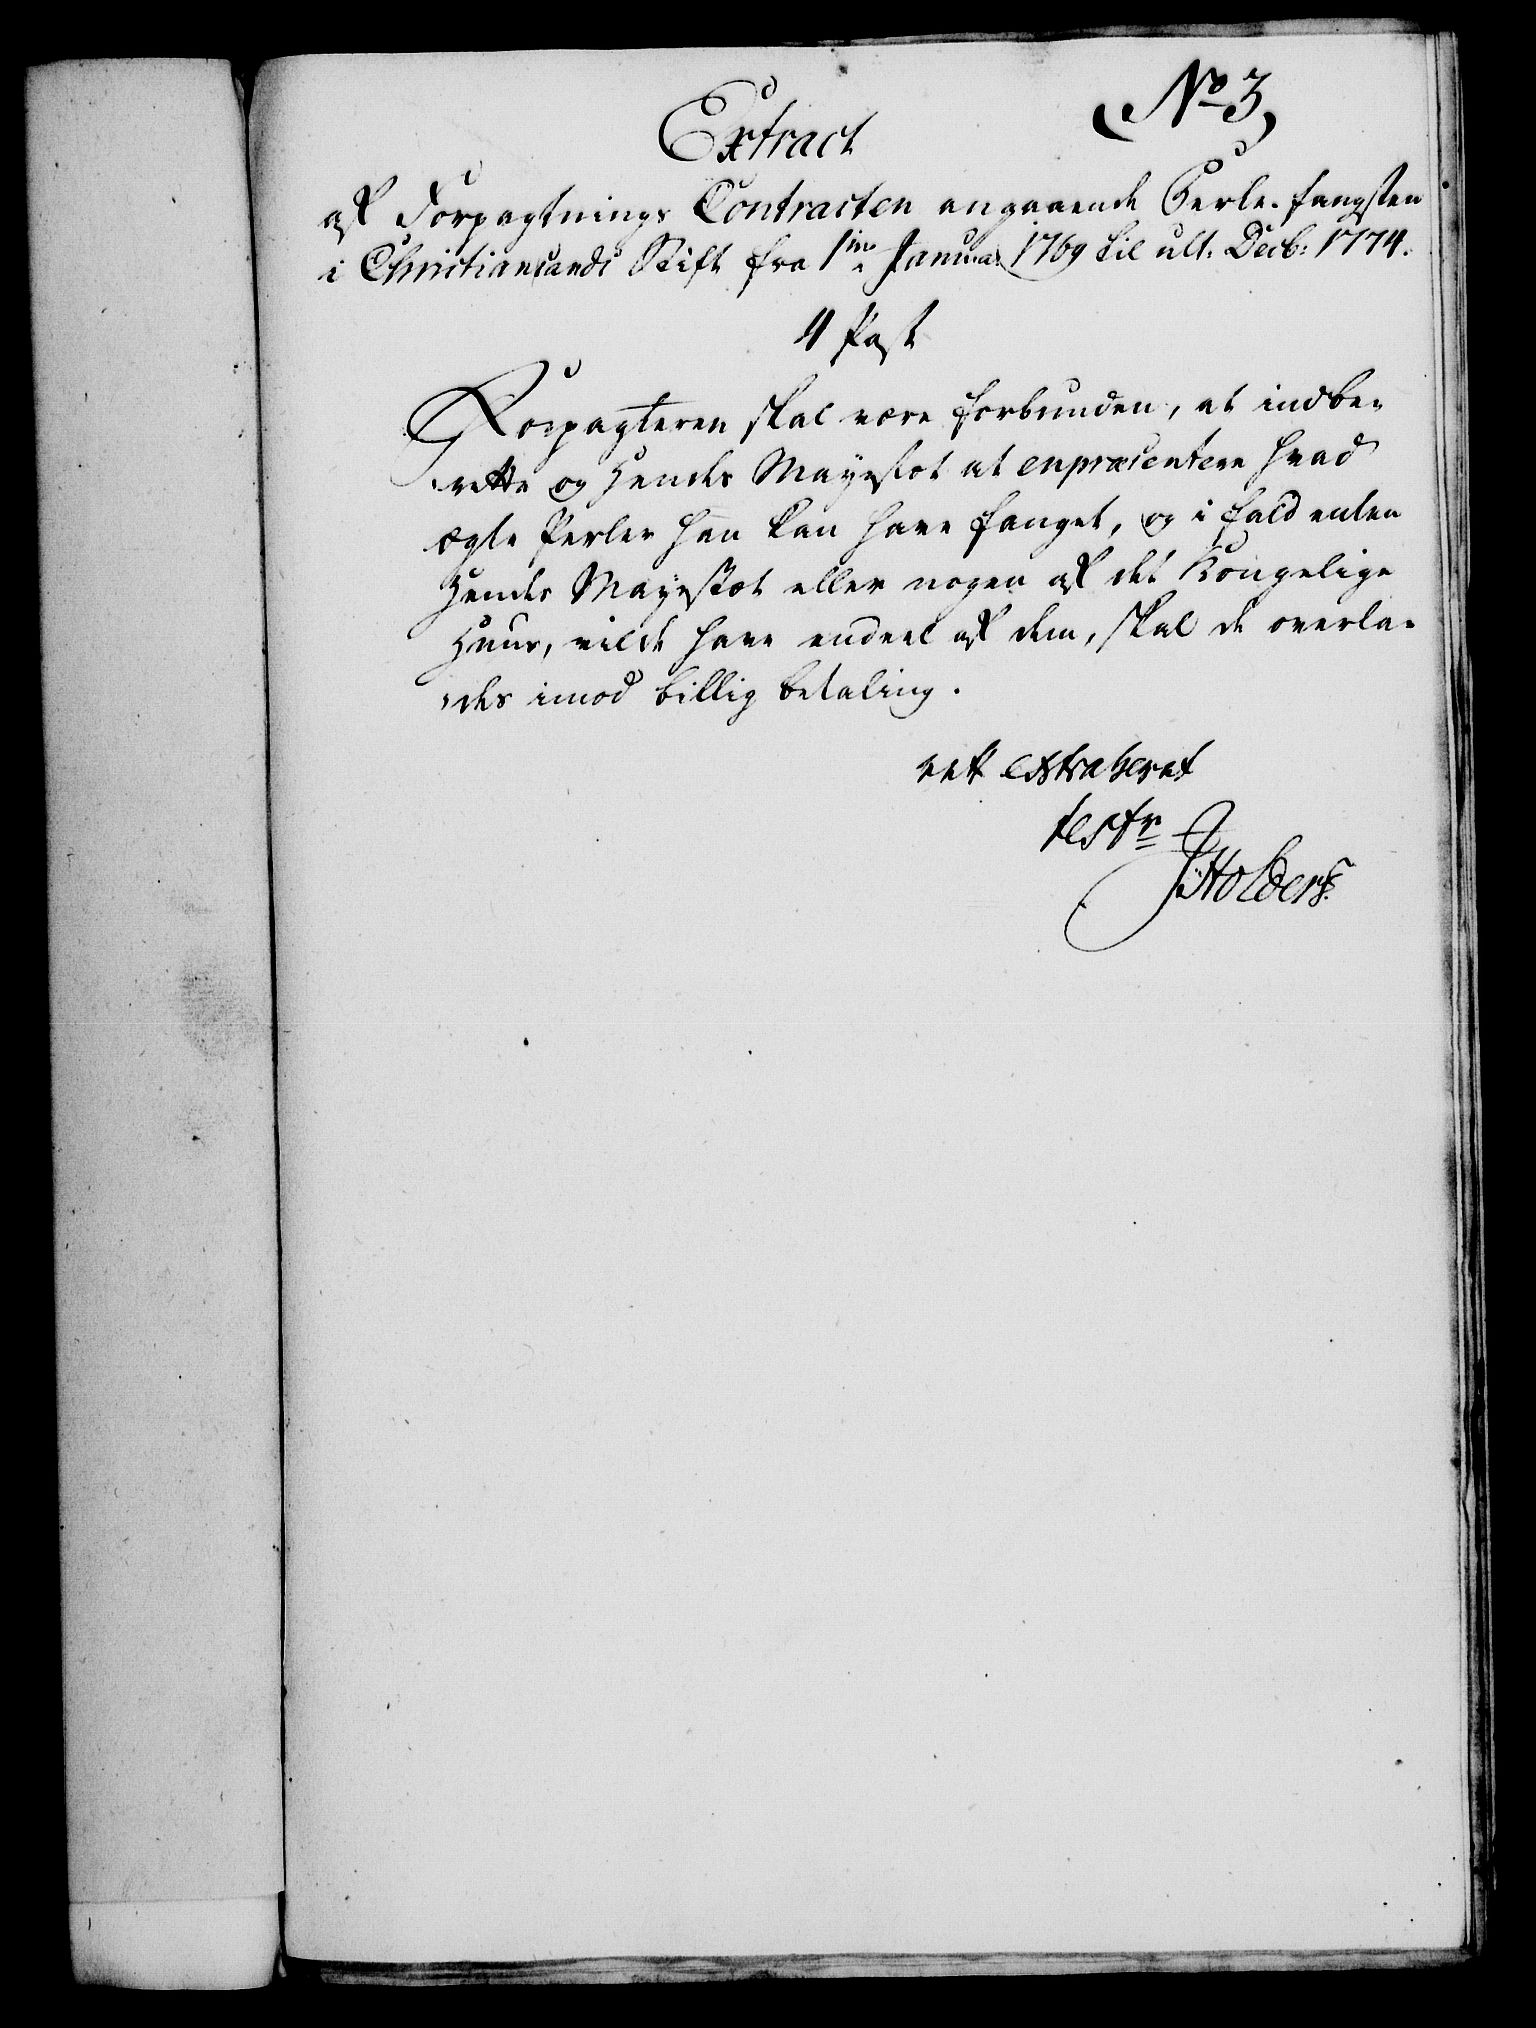 No 3
Extract
af Forpagtnings Contracten angaaende Perle-fangsten
i Christiansands Stift fra 1me Januar 1769 til ult: Decb: 1774.
4 Post
Forpagteren skal være forbunden, at indbe-
rette og Hendes Mayestæt at enpræsentere hvad
ægte Perler han kan have fanget, og i fald enten
Hendes Mayestæt eller nogen af det Kongelige
Huus, vilde have endeel af dem, skal de overla-
des imod billig betaling.
rett extraheret
test
JHolders